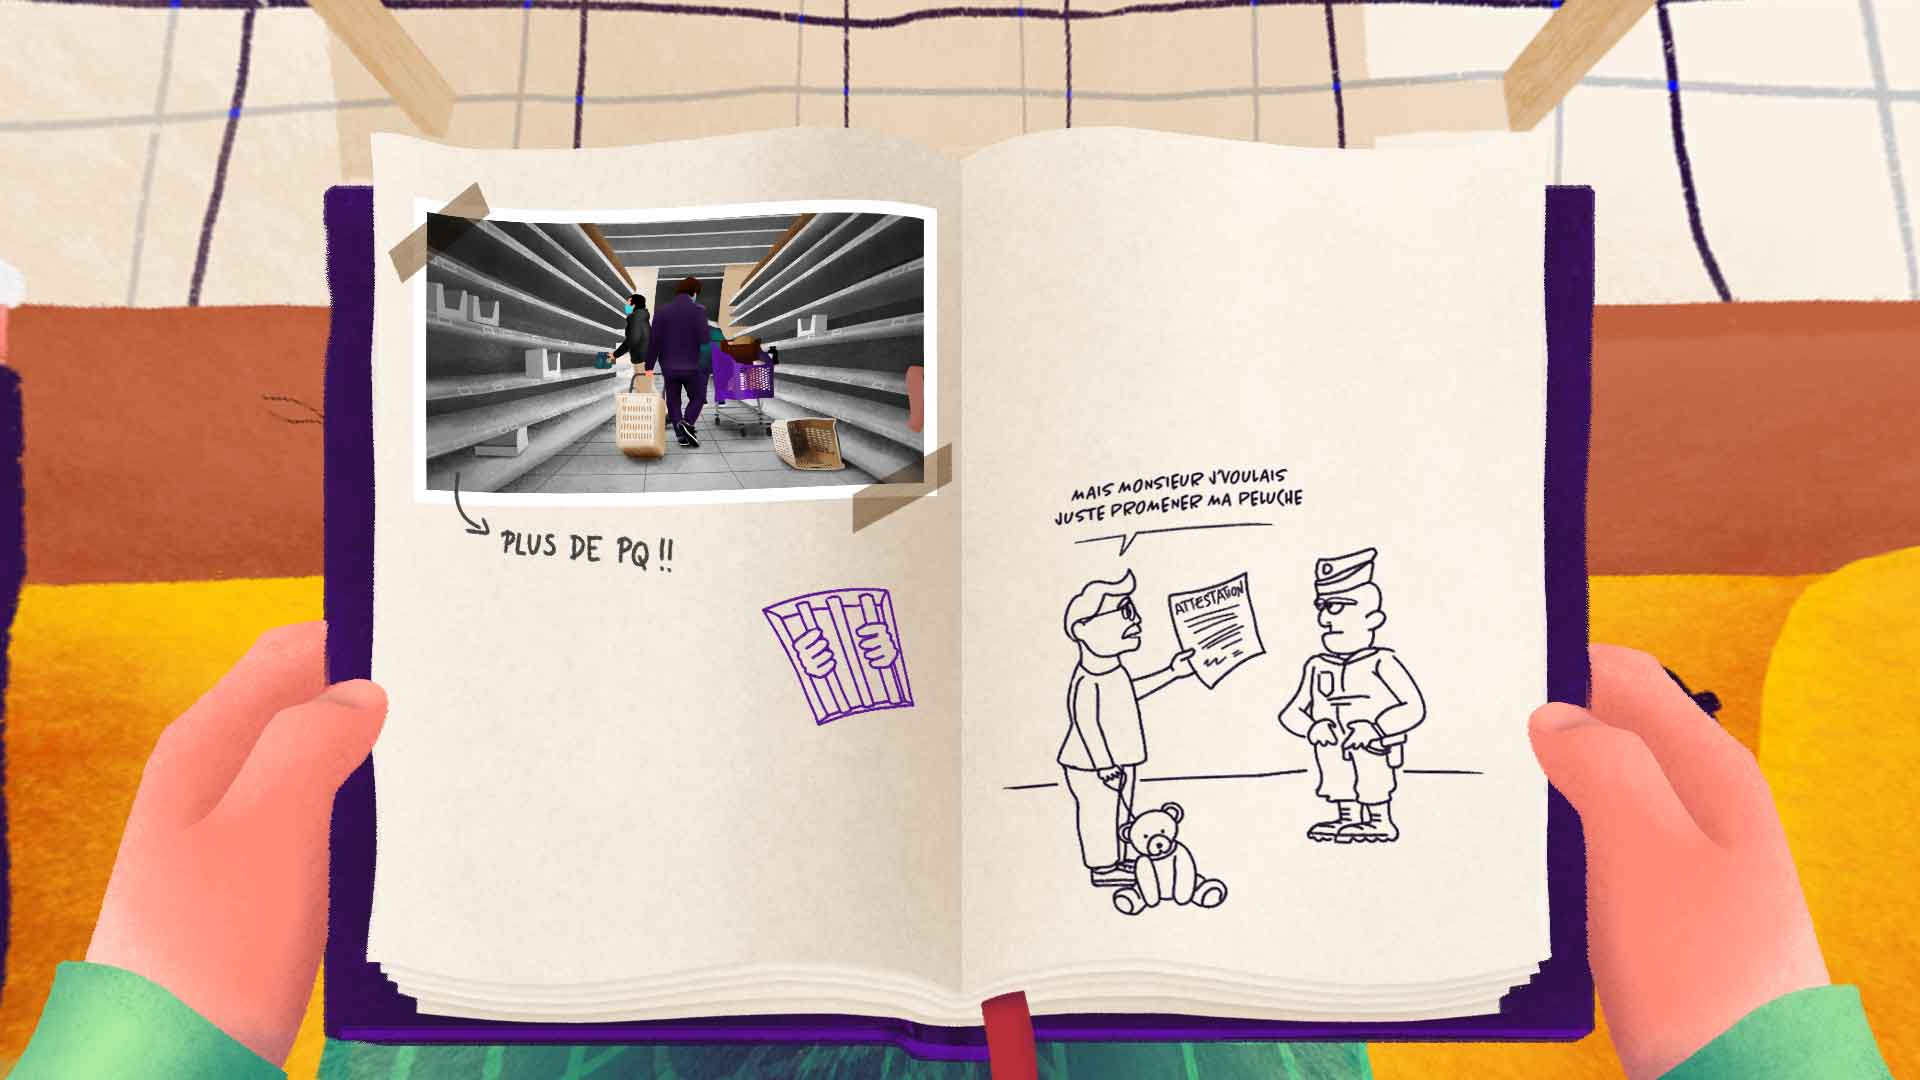 PLUS DE PQ !!
MAIS MONSIEUR J'VOULAIS
JUSTE PROMENER MA PELUCHE
ATTESTATION